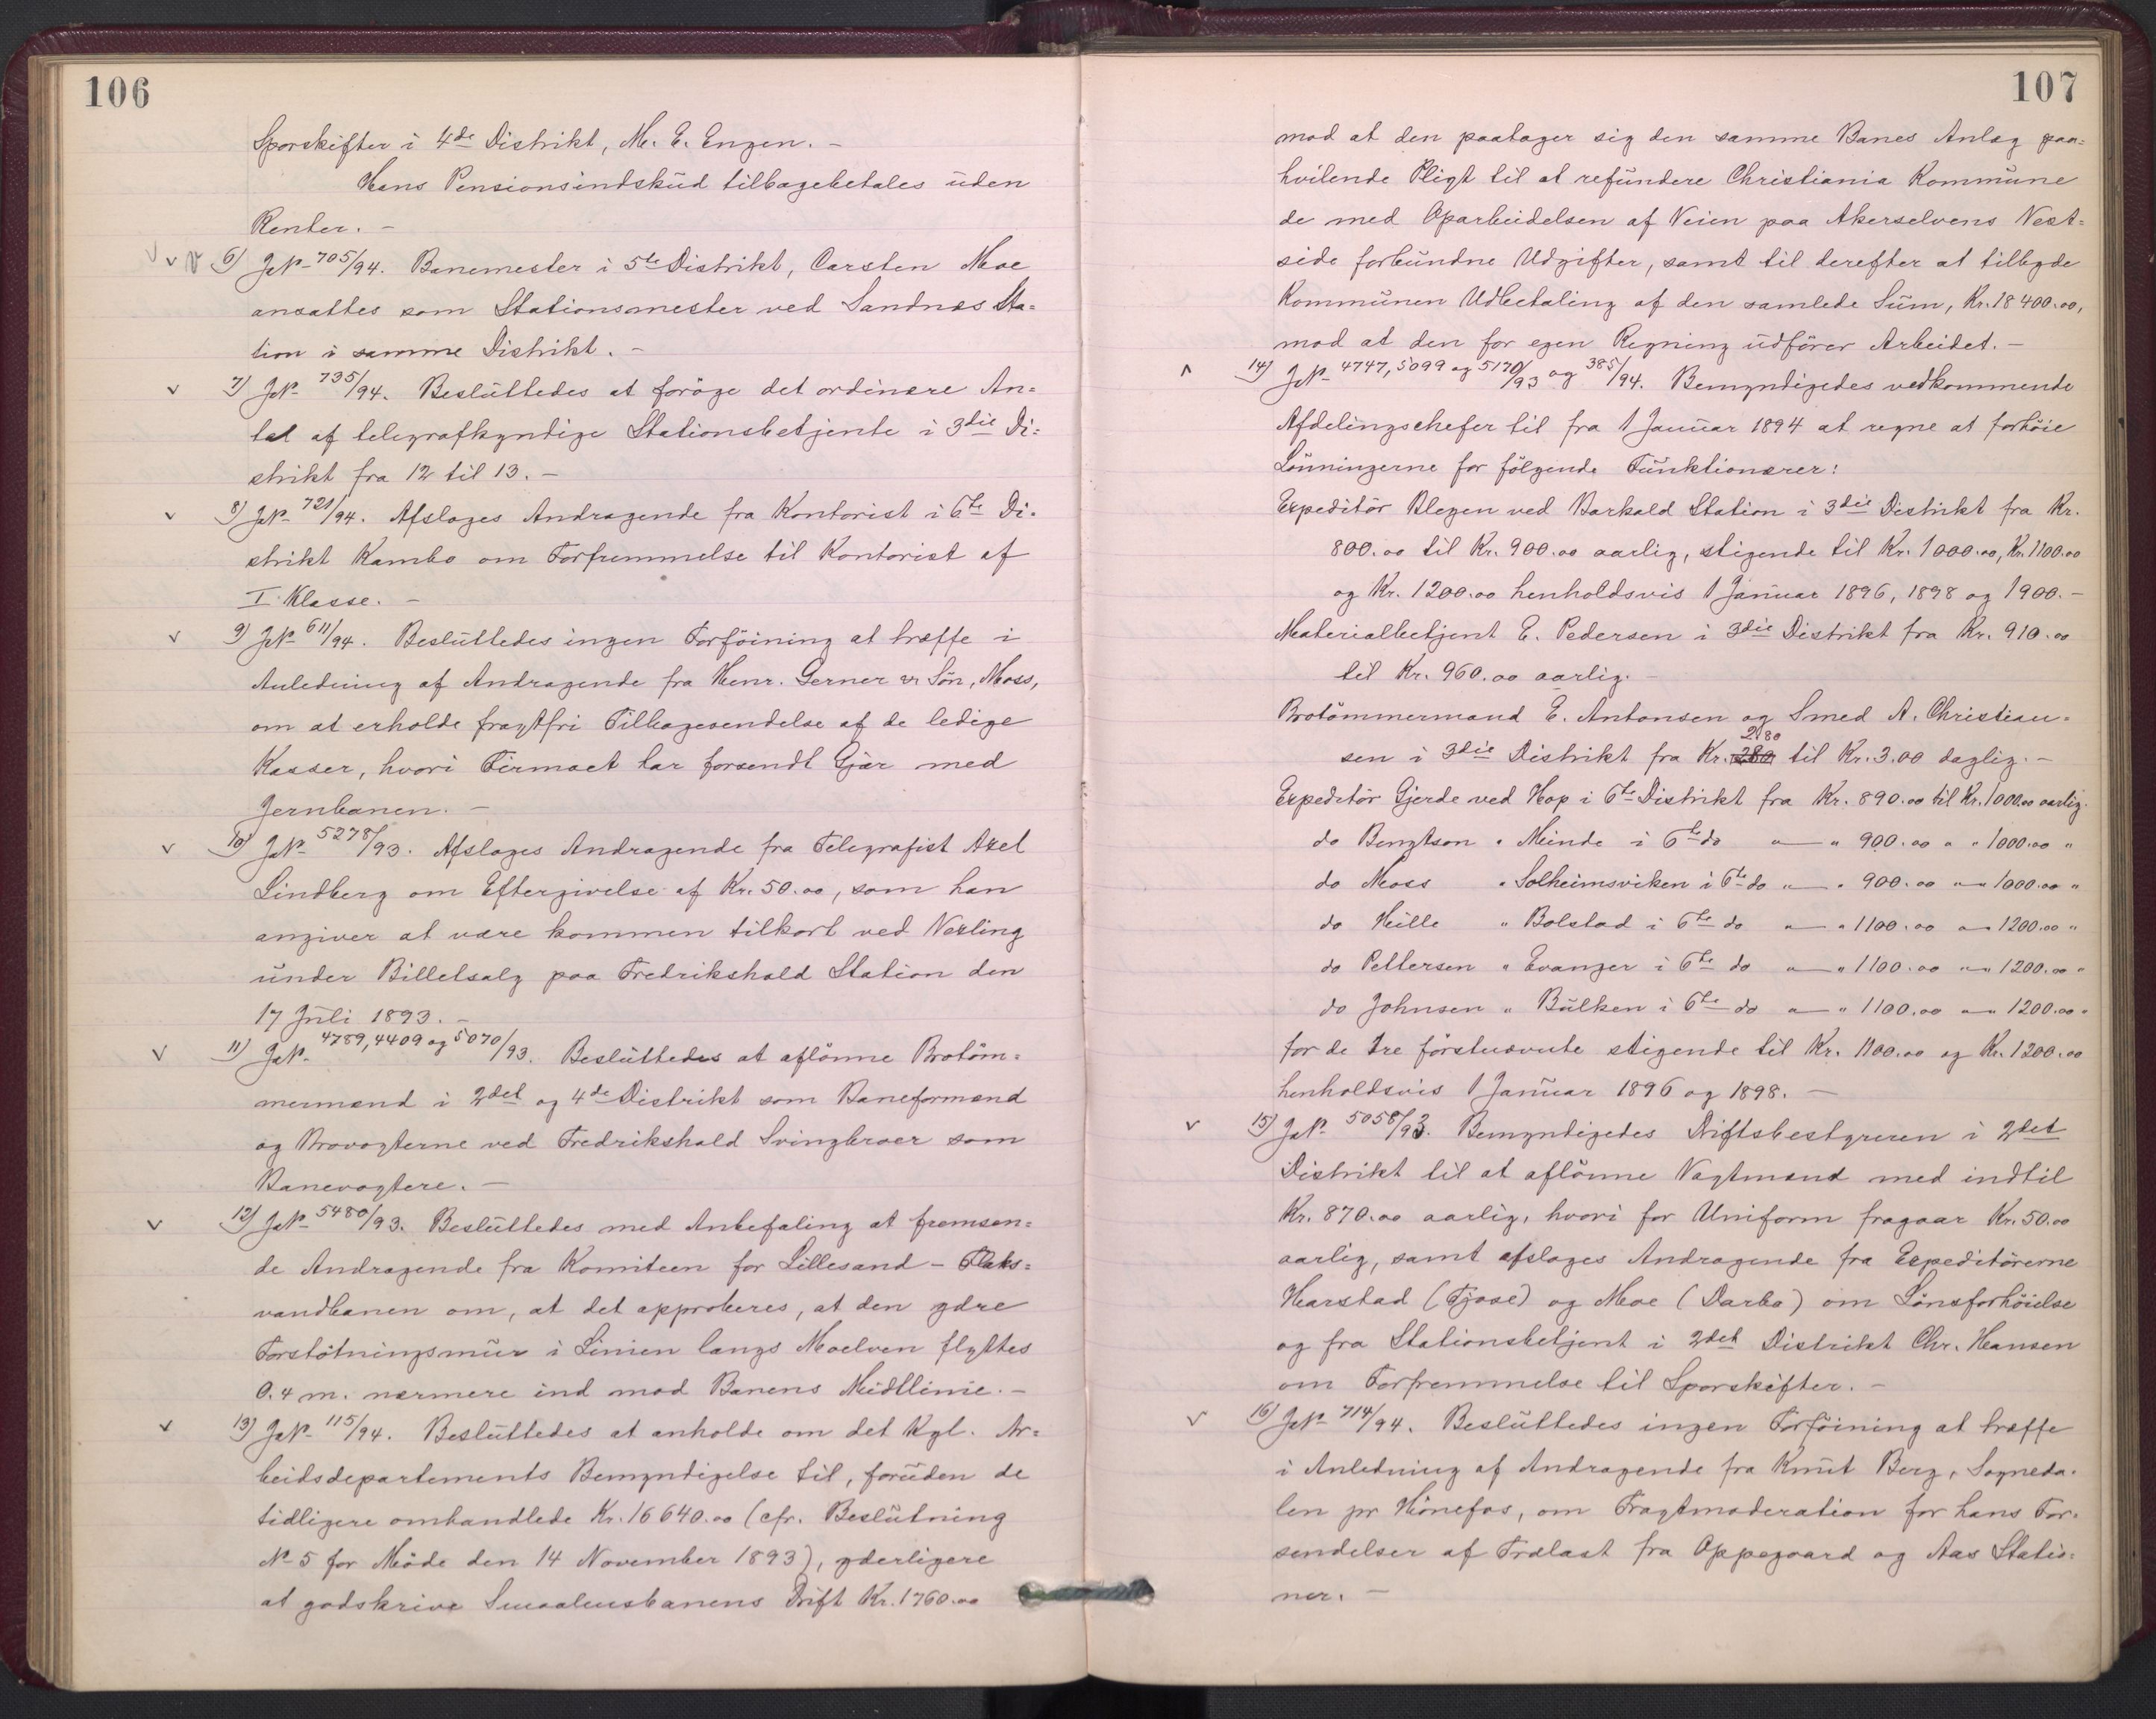 106
Sporskifter i 4de Distrikt, M. E. Engen. —
Hans Pensionsindskud tilbagebetales uden
Renter. —
6) J№ 705/94. Banemester i 5te Distrikt, Carsten Moe
ansattes som Stationsmester ved Sandnes Sta=
tion i samme Distrikt. —
7) J№ 735/94. Besluttedes at forøge det ordinære An=
tal af telegrafkyndige Stationsbetjente i 3die Di=
strikt fra 12 til 13. —
8) J№ 721/94. Afsloges Andragende fra Kontorist i 6te Di=
strikt Kambo om Forfremmelse til Kontorist af
I Klasse. —
9) J№ 611/94. Besluttedes ingen Forføining at træffe i
Anledning af Andragende fra Henr. Gerner & Søn, Moss,
om at erholde fragtfri Tilbagesendelse af de ledige
Kasser, hvori Firmaet har forsendt Gjær med
Jernbanen. —
10) J№ 5278/93. Afsloges Andragende fra Telegrafist Axel
Lindberg om Eftergivelse af Kr. 50.00, som han
angiver at være kommen tilkort ved Vexling
under Billetsalg paa Fredrikshald Station den
17 Juli 1893. —
11) J№ 4789, 4409 og 5070/93. Besluttedes at aflønne Brotøm=
mermænd i 2det og 4de Distrikt som Baneformænd
og Brovogterne ved Fredrikshald Svingbroer som
Banevogtere. —
12) J№ 5480/93. Besluttedes med Anbefaling at fremsen=
de Andragende fra Komiteen for Lillesand - Flaks=
vandbanen om, at det approberes, at den ydre
Forstøtningsmur i Linien langs Moelven flyttes
0.4 m. nærmere ind mod Banens Midllinie. —
13) J№ 115/94. Besluttedes at anholde om det Kgl. Ar=
beidsdepartements Bemyndigelse til, foruden de
tidligere omhandlede Kr. 16640.00 (cfr. Beslutning
№ 5 for Møde den 14 November 1893), yderligere
at godskrive Smaalensbanens Drift Kr. 1760.00
107
mod at den paatager sig den samme Banes Anlæg paa=
hvilende Pligt til at refundere Christiania Kommune
de med Oparbeidelsen af Veien paa Akerselvens Vest=
side forbundne Udgifter, samt til derefter at tilbyde
Kommunen Udbetaling af den samlede Sum, Kr. 18400.00,
mod at den for egen Regning udfører Arbeidet. —
14) J№ 4747, 5099 og 5170/93 og 385/94. Bemyndigedes vedkommende
Afdelingschefer til fra 1 Januar 1894 at regne at forhøie
Lønningerne for følgende Funktionærer:
Expeditør Blegen ved Barkald Station i 3die Distrikt fra Kr.
800.00 til Kr. 900.00 aarlig, stigende til Kr. 1000.00, Kr. 1100.00
og Kr. 1200.00 henholdsvis 1 Januar 1896, 1898 og 1900. —
Materialbetjent E. Pedersen i 3die Distrikt fra Kr. 910.00
til Kr. 960.00 aarlig. —
Brotømmermand E. Antonsen og Smed A. Christian=
sen i 3die Distrikt fra Kr. 280 2.80 til Kr. 3.00 daglig. —
Expeditør Gjerde ved Hop i 6te Distrikt fra Kr. 890.00 til Kr. 1000.00 aarlig.
do Bengtson " Minde i 6te do " — " 900.00 " " 1000.00 "
do Moss " Solheimsviken i 6te do " — " 900.00 " — " 1000.00 "
do Hille " Bolstad i 6te do " — " 1100.00 " — 1200.00 "
do Pettersen " Evanger i 6te do " — " 1100.00 " — " 1200.00 "
do Johnsen " Bulken i 6te do " — " 1100.00 " — " 1200.00 "
for de tre førstnævnte stigende til Kr. 1100.00 og Kr. 1200.00
henholdsvis 1 Januar 1896 og 1898. —
15) J№ 5058/93. Bemyndigedes Driftsbestyreren i 2det
Distrikt til at aflønne Vagtmænd med indtil
Kr. 870.00 aarlig, hvori for Uniform fragaar Kr. 50.00
aarlig, samt afsloges Andragende fra Expeditørerne
Harstad (Tjose) og Moe (Darbo) om Lønsforhøielse
og fra Stationsbetjent i 2det Distrikt Chr. Hansen
om Forfremmelse til Sporskifter. —
16) J№ 714/94. Besluttedes ingen Forføining at træffe
i Anledning af Andragende fra Knut Berg, Sogneda=
len pr Hønefos, om Fragtmoderation for hans For=
sendelser af Trælast fra Oppegaard og Aas Statio=
ner. —